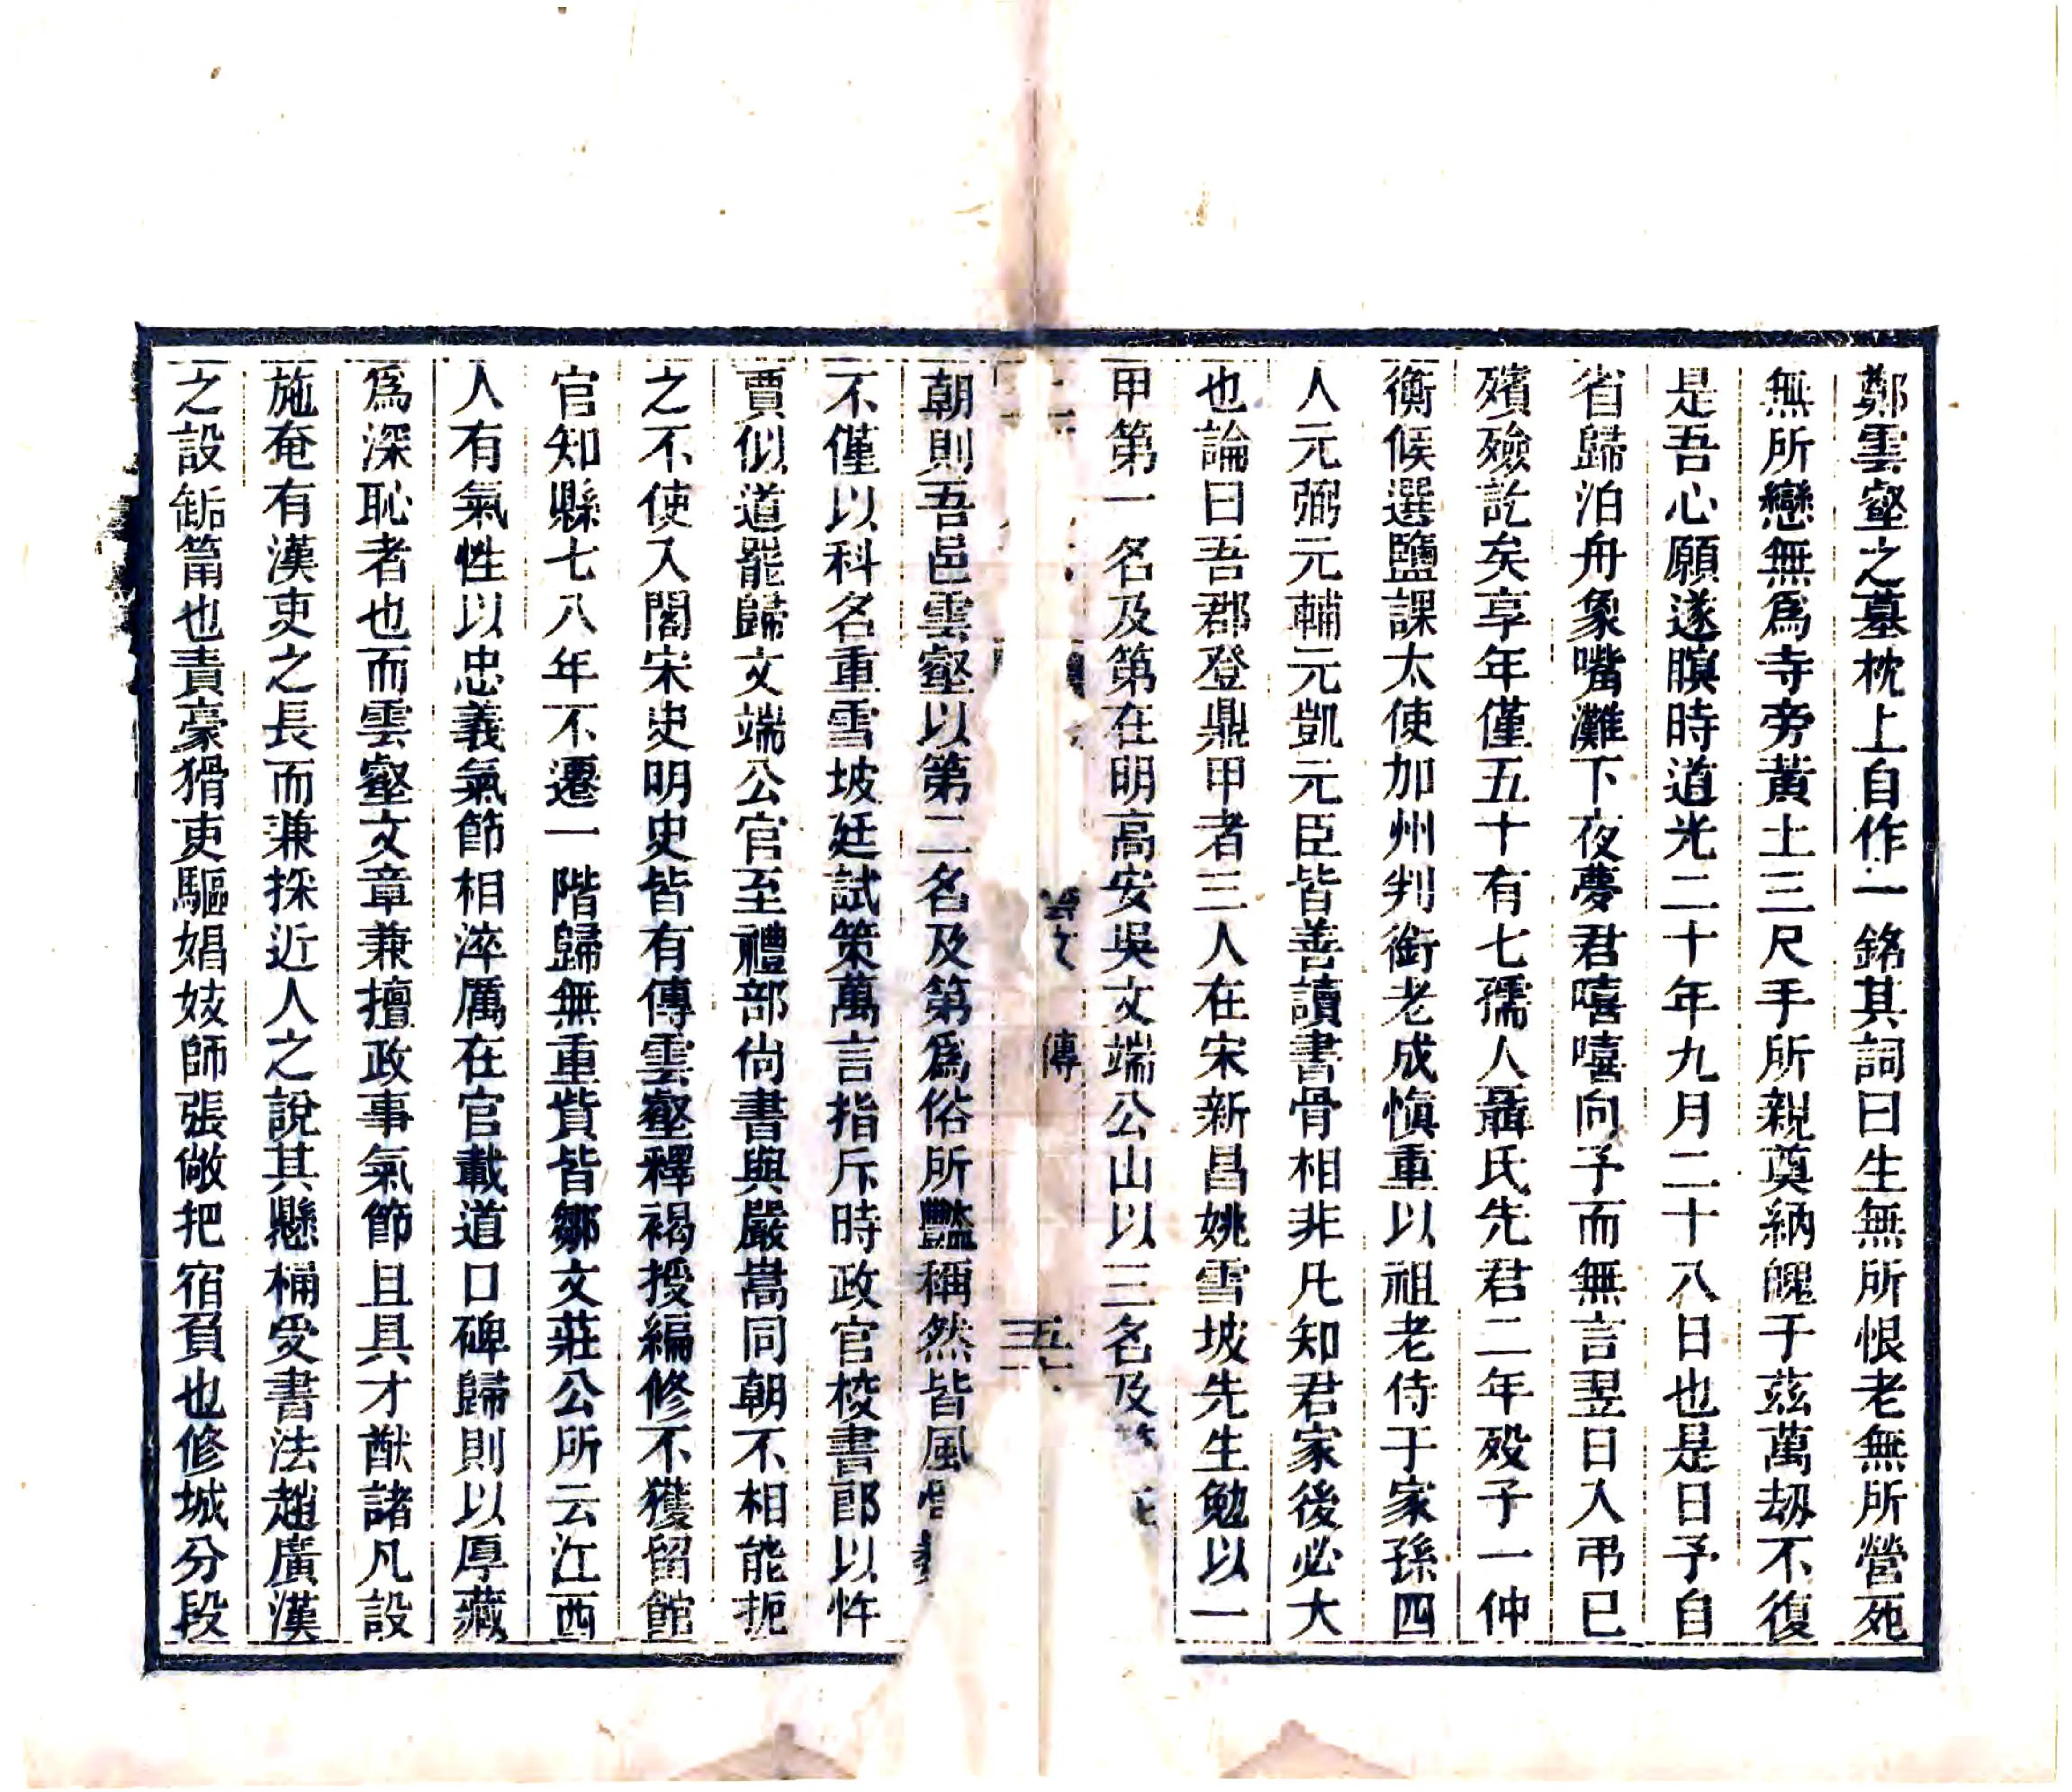 鄭雲壑之墓枕上自作一銘其詞曰生無所恨老無所營死
無所戀無爲寺旁黃土三尺手所親奠納魄于茲萬刼不復
是吾心願遂瞑時道光二十年九月二十八日也是日予自
省歸泊舟象嘴灘下夜夢君嘻嘻向予而無言翌日入弔已
殯殮訖矣享年僅五十有七孺人聶氏先君二年歿子一仲
衡候選鹽課太使加州判銜老成慎重以祖老侍于家孫四
人元弼元輔元凱元臣皆善讀書骨相非凡知君家後必大
也論曰吾郡登鼎甲者三人在宋新昌姚雪坡先生勉以一
甲第一名及第在明高安吳文端公山以三名及
傳
朝則吾邑雲壑以第二名及第爲俗所豔稱然皆風
不僅以科名重雪坡廷試策萬言指斥時政官校書郎以忤
賈似道罷歸文端公官至禮部尙書與嚴嵩同朝不相能扼
之不使入閣宋史明史皆有傳雲壑釋褐授編修不獲留館
官知縣七八年不遷一階歸無重貲皆鄒文莊公所云江西
人有氣性以忠義氣節相淬厲在官載道口碑歸則以厚藏
爲深恥者也而雲壑文章兼擅政事氣節且具才猷諸凡設
施奄有漢吏之長而兼採近人之說其懸桶受書法趙廣漢
之設缿筩也責豪猾吏驅娼妓師張敞把宿負也修城分段